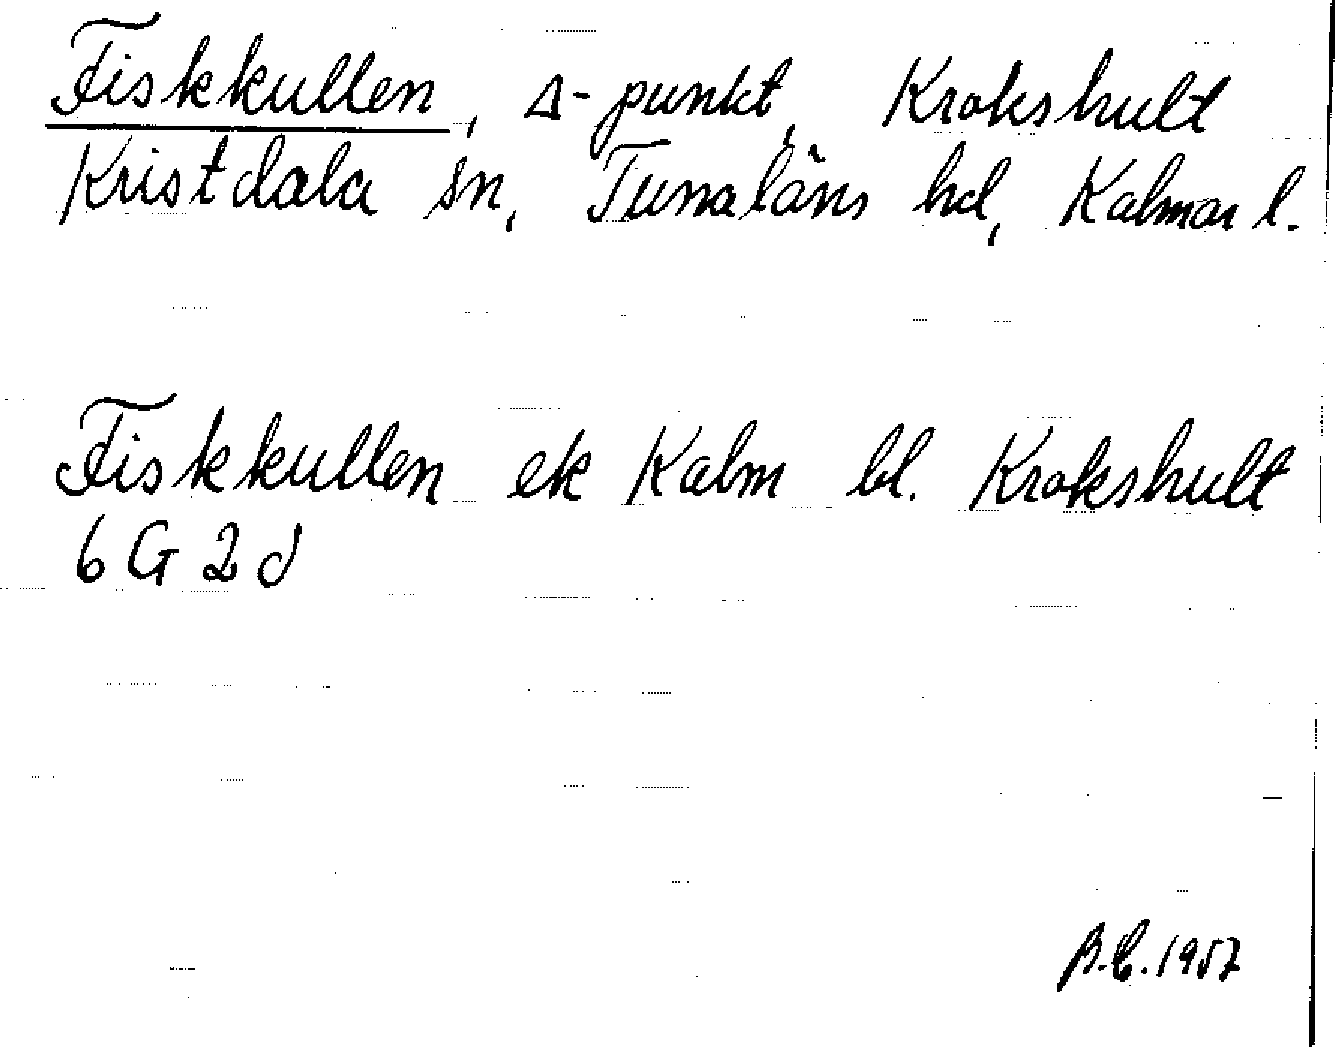 Fiskkullen, Δ-punkt, Krokshult
Kristdala sn, Tunaläns hd, Kalmar l.
Fiskkullen ek Kalm bl. Krokshult
6 G 2 d
B.E. 1957